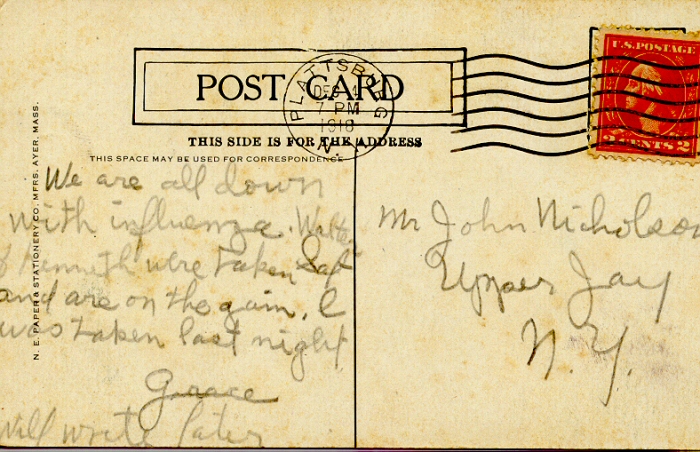 U.S. POSTAGE
2 CENTS 2
POST CARD
PLATTSBURG
DEC 4
7 PM
1918
N.Y.
THIS SIDE IS FOR THE ADDRESS
THIS SPACE MAY BE USED FOR CORRESPONDENCE
N. E. PAPER & STATIONERY CO. MFRS. AYER, MASS.
We are all down
with influenza. Walter
& Kenneth were taken Sat
and are on the gain.
was taken last night
Grace
Will write later
Mr John Nicholson
Upper Jay
N.Y.